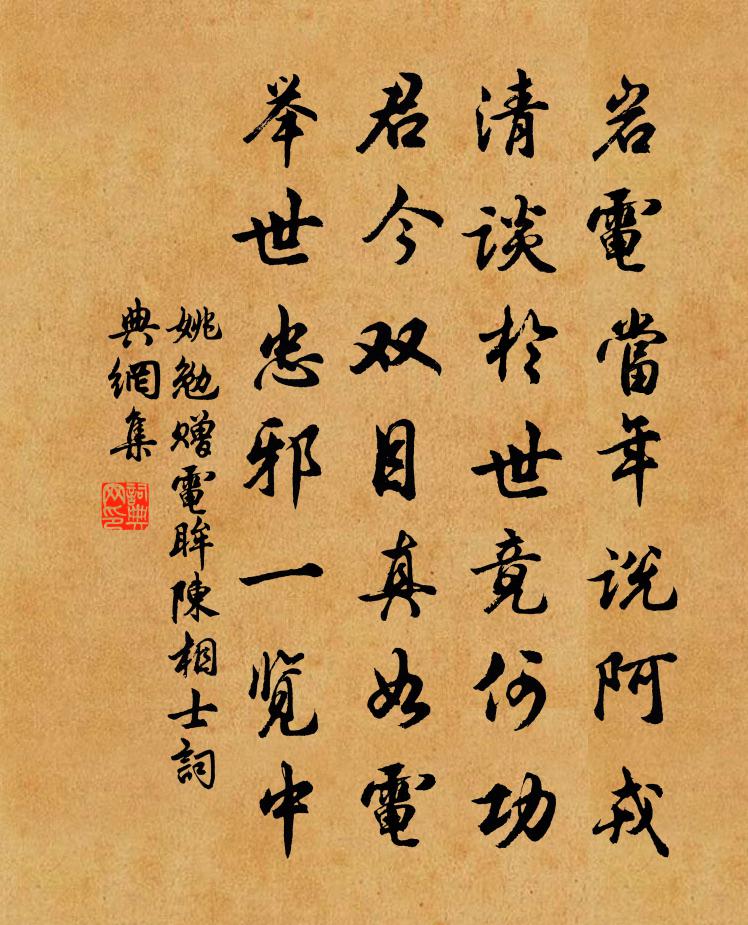 岩電當年说阿戎
清谈於世竟何功
君今双目真如電
举世忠邪一览中
姚勉赠電眸陳相士詞
典網集
詞典
网印